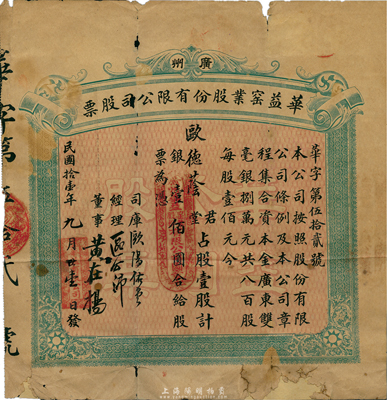 廣州
華益窑業股份有限公司股票
華字第伍拾貳號
本公司按照股份有限
公司條例及本公司章
程集合資本金廣東雙
毫銀捌萬元共八百股
每股壹佰元今
歐德蔭堂君占股壹股計
銀壹佰圓合給股
票為憑
司庫歐陽
經理區
董事黃在揚
民國拾壹年九月廿壹日發
華字第伍拾貳號
上海陽明拍賣